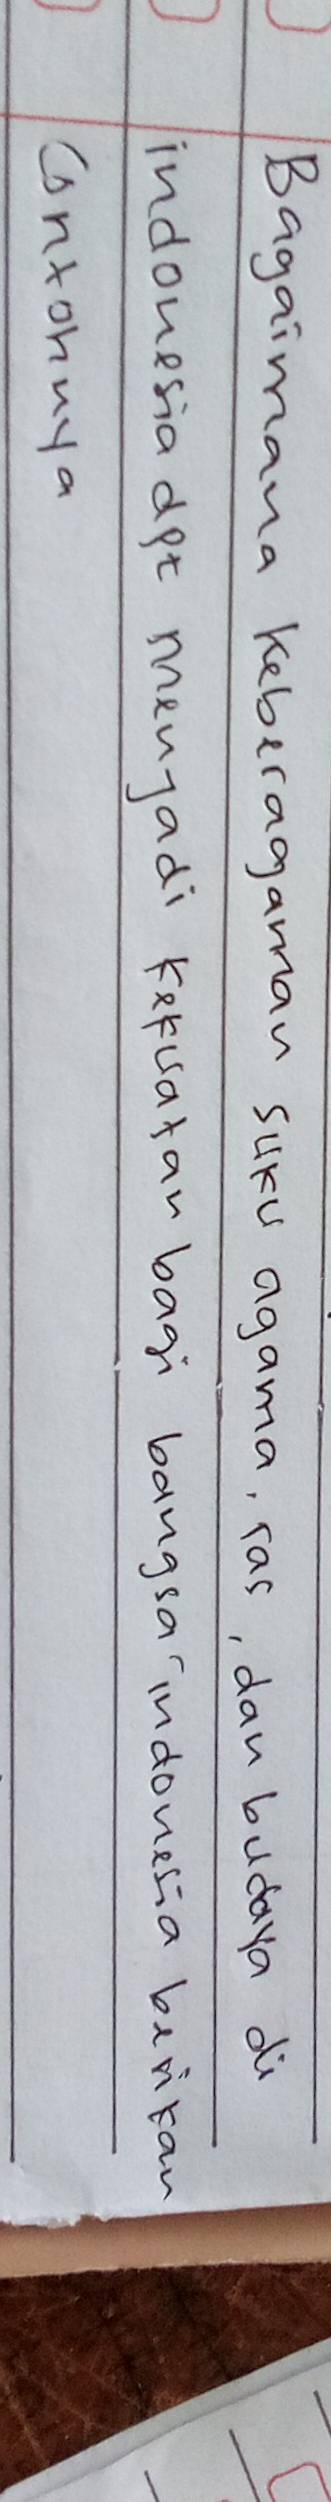 Bagaimana keberagaman suku agama, ras, dan budaya di
indonesia dpt menjadi kekuatan bagi bangsa indonesia berikan
Contohnya